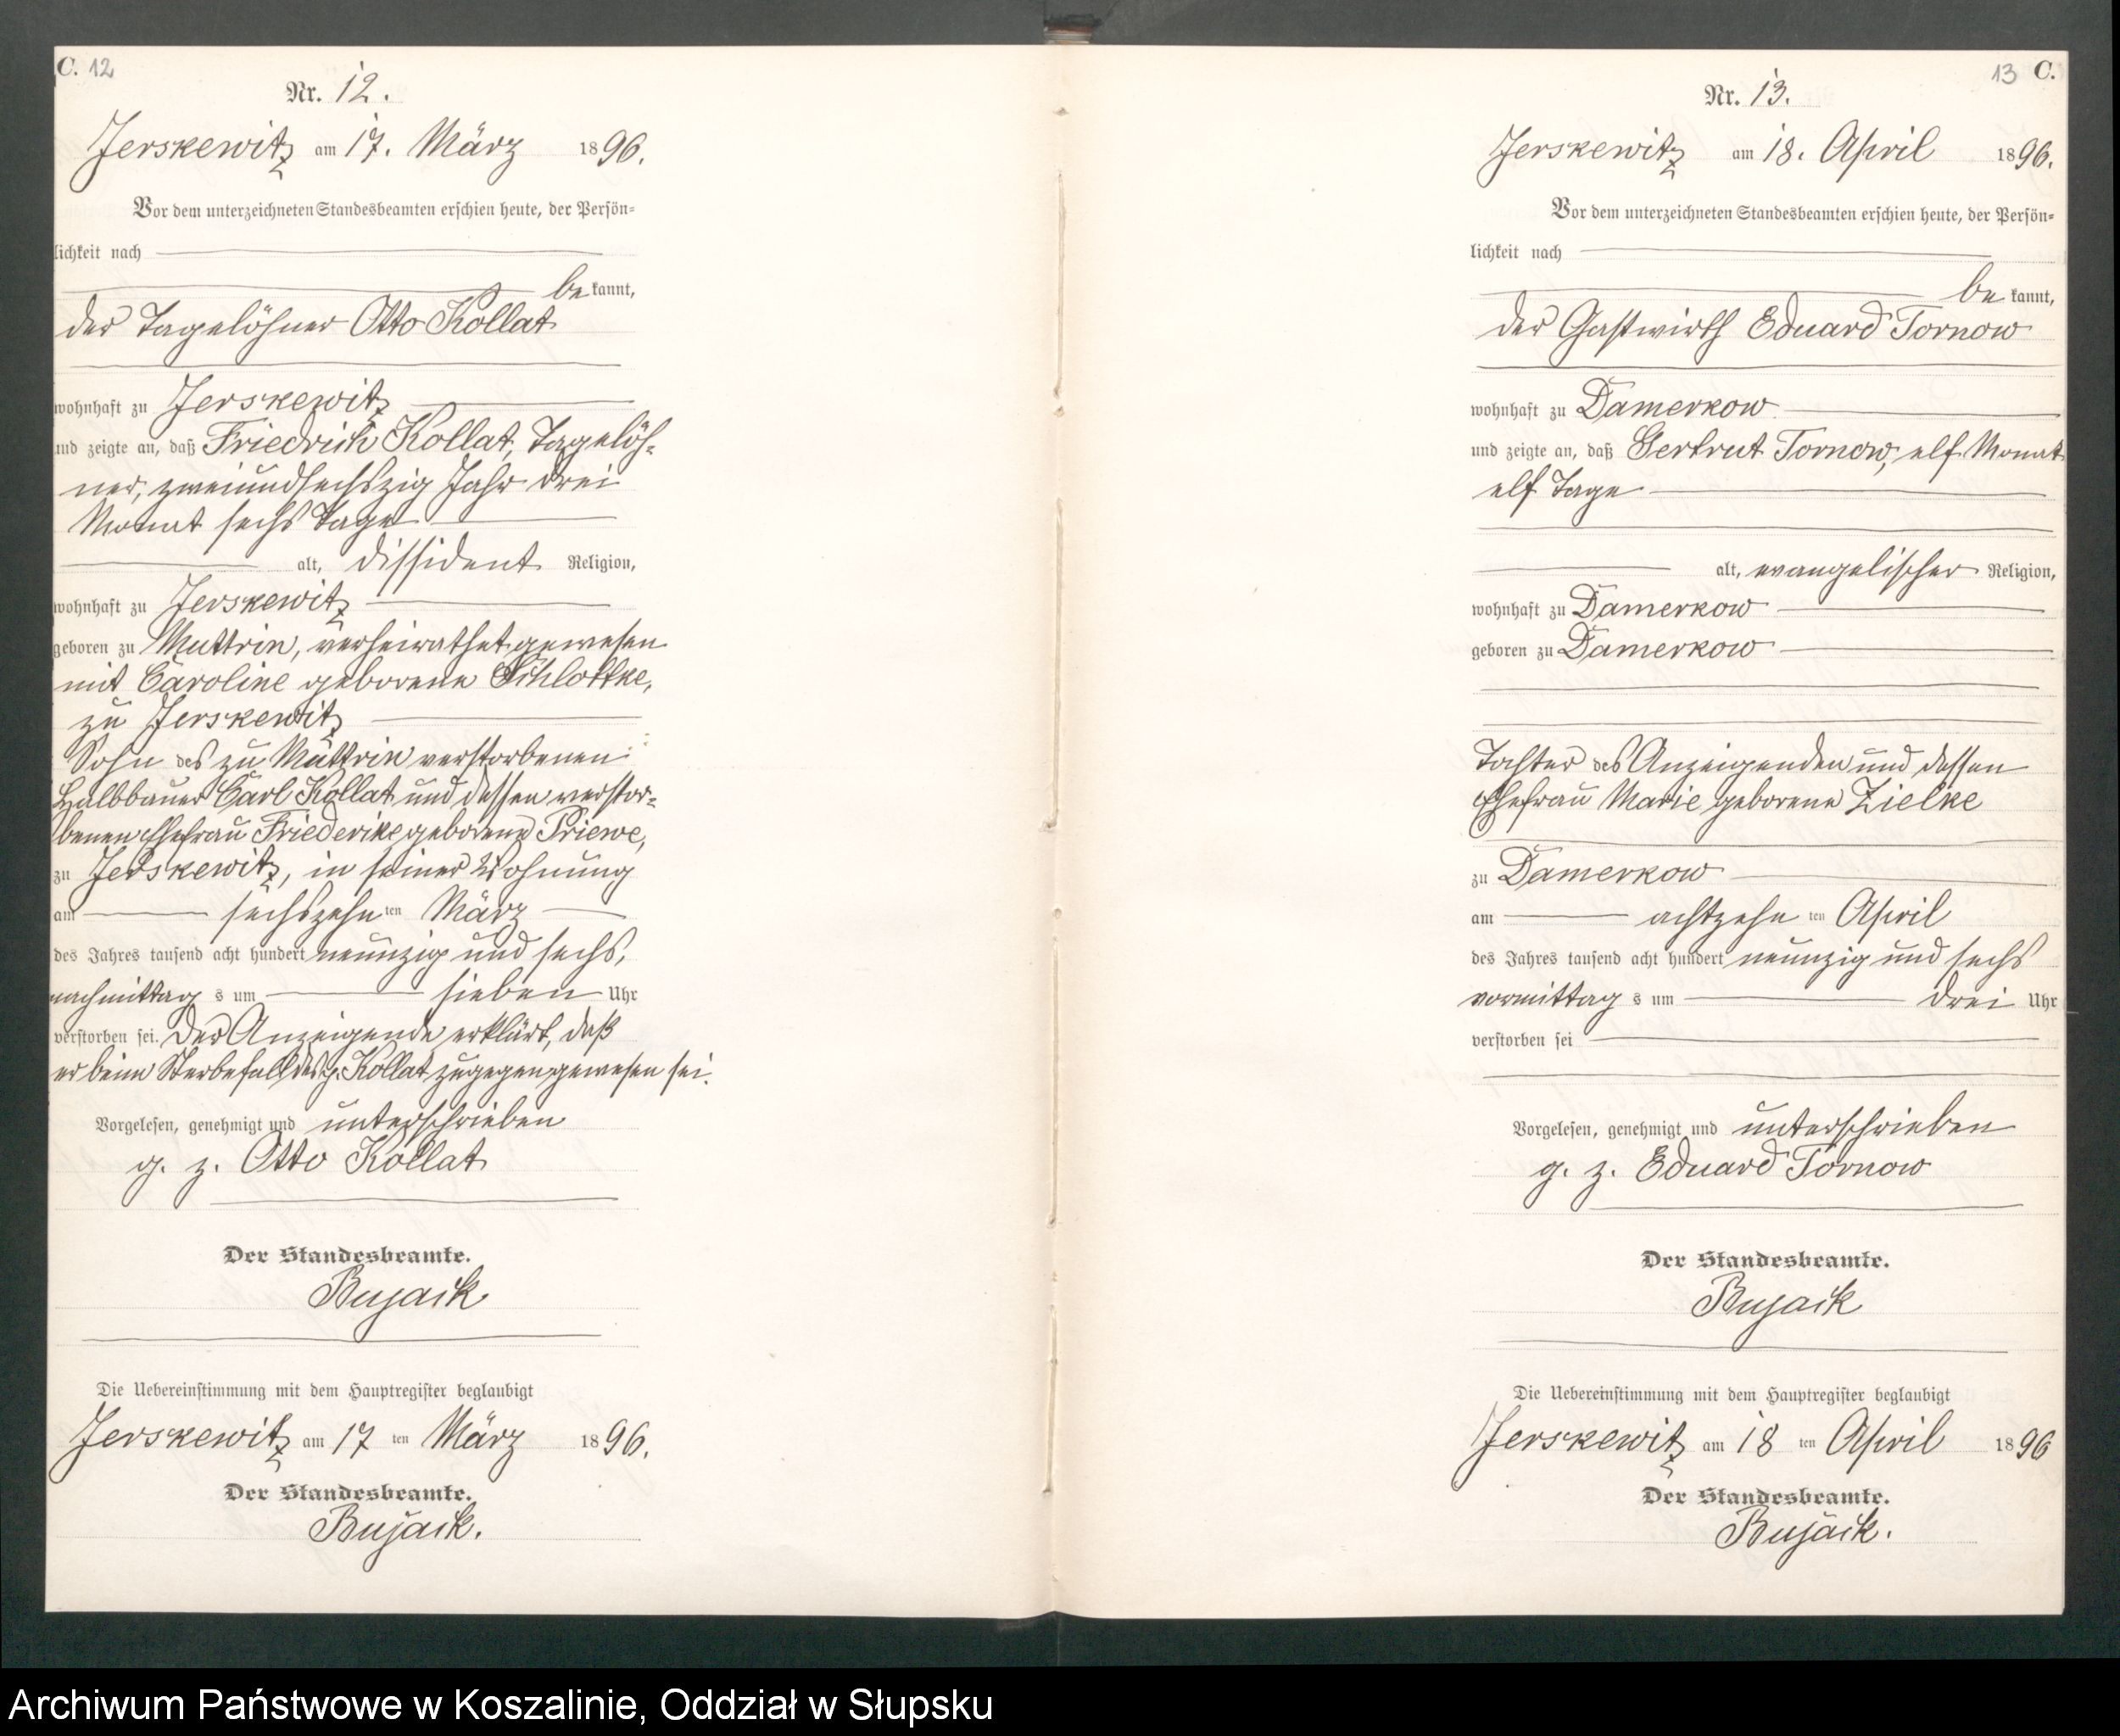 C. 12
Nr. 12.
Jerskewitz am 17. März 1896.
Vor dem unterzeichneten Standesbeamten erschien heute, der Persön-
lichkeit nach
bekannt,
der Tagelöhner Otto Kollat
wohnhaft zu Jerskewitz
und zeigte an, daß Friedrich Kollat, Tagelöh-
ner, zweiundsechszig Jahr drei
Monat sechs Tage
alt, dissident Religion,
wohnhaft zu Jerskewitz
geboren zu Muttrin, verheirathet gewesen
mit Caroline geborene Schlottke,
zu Jerskewitz
Sohn des zu Muttrin verstorbenen
Halbbauer Carl Kollat und dessen verstor-
benen Ehefrau Friederike geborene Priewe,
zu Jerskewitz, in seiner Wohnung
am sechszehnten März
des Jahres tausend acht hundert neunzig und sechs,
nachmittags um sieben Uhr
verstorben sei. Der Anzeigende erklärt, daß
er beim Sterbefall des p. Kollat zugegen gewesen sei.
Vorgelesen, genehmigt und unterschrieben
g. z. Otto Kollat
Der Standesbeamte.
Bujack
Die Uebereinstimmung mit dem Hauptregister beglaubigt
Jerskewitz am 17ten März 1896.
Der Standesbeamte.
Bujack.
13 C.
Nr. 13.
Jerskewitz am 18. April 1896.
Vor dem unterzeichneten Standesbeamten erschien heute, der Persön-
lichkeit nach
bekannt,
der Gastwirth Eduard Tornow
wohnhaft zu Damerkow
und zeigte an, daß Gertrut Tornow, elf Monat
elf Tage
alt, evangelischer Religion,
wohnhaft zu Damerkow
geboren zu Damerkow
Tochter des Anzeigenden und dessen
Ehefrau Marie geborene Zielke
zu Damerkow
am achtzehnten April
des Jahres tausend acht hundert neunzig und sechs
vormittags um drei Uhr
verstorben sei
Vorgelesen, genehmigt und unterschrieben
g. z. Eduard Tornow
Der Standesbeamte.
Bujack
Die Uebereinstimmung mit dem Hauptregister beglaubigt
Jerskewitz am 18ten April 1896
Der Standesbeamte.
Bujack.
Archiwum Państwowe w Koszalinie, Oddział w Słupsku